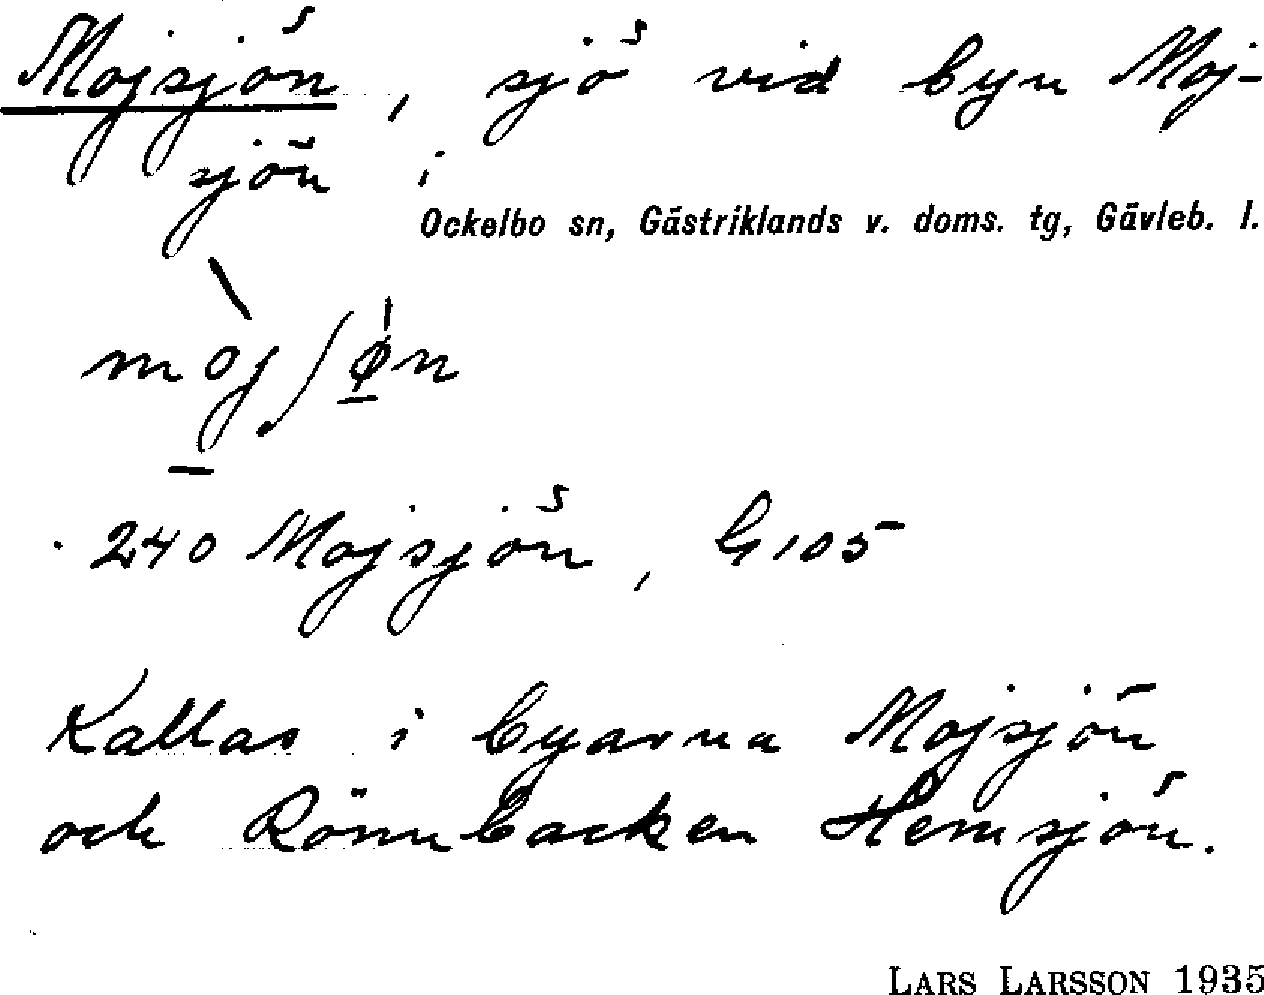 Mojsjön, sjö vid byn Moj-
sjön i
Ockelbo sn, Gästriklands v. doms. tg, Gävleb. l.
mòjʃøn
240 Mojsjön, G 105
Kallas i byarna Mojsjön
och Rönnbacken Hemsjön.
LARS LARSSON 1935